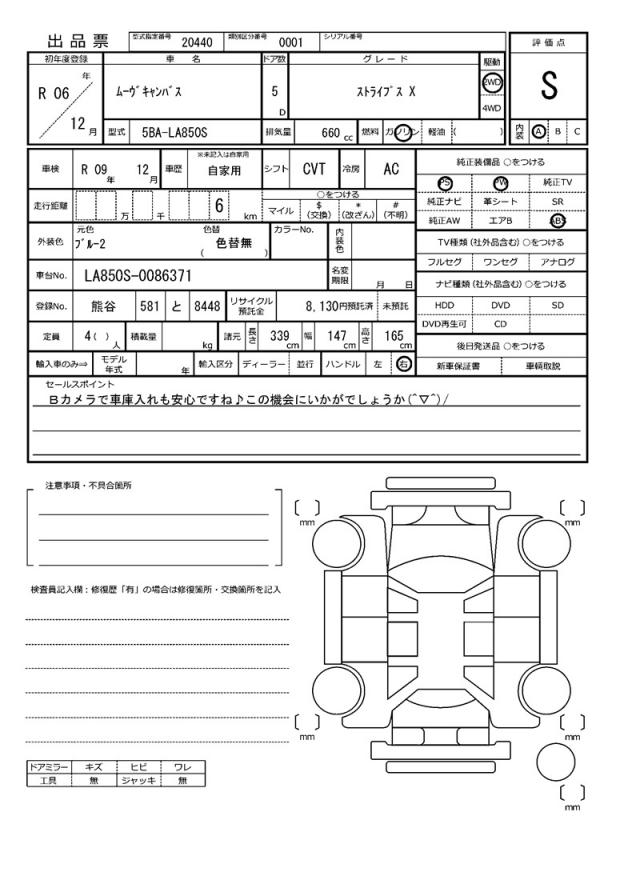 出品票 型式指定番号 20440 類別区分番号 0001 シリアル番号
評価点
S
初年度登録 車名 ドア数 グレード 駆動
R 06 年 12 月 ムーヴキャンバス 5 D ストライプス X 2WD 4WD
型式 5BA-LA850S 排気量 660 cc 燃料 ガソリン 軽油 ( )
内装 A B C
車検 R 09 年 12 月 車歴 ※未記入は自家用 自家用 シフト CVT 冷房 AC
走行距離 万 千 6 km
○をつける
マイル $(交換) *(改ざん) #(不明)
外装色 元色 ブルー2 色替 色替無 ( ) カラーNo. 内装色
車台No. LA850S-0086371 名変期限 月 日
登録No. 熊谷 581 と 8448 リサイクル預託金 8,130円預託済 未預託
定員 4( ) 人 積載量 kg 諸元 長さ 339 cm 幅 147 cm 高さ 165 cm
輸入車のみ⇒ モデル年式 年 輸入区分 ディーラー 並行 ハンドル 左 右
純正装備品 ○をつける
PS PW 純正TV
純正ナビ 革シート SR
純正AW エアB ABS
TV種類(社外品含む)○をつける
フルセグ ワンセグ アナログ
ナビ種類(社外品含む)○をつける
HDD DVD SD
DVD再生可 CD
後日発送品 ○をつける
新車保証書 車輌取説
セールスポイント
Bカメラで車庫入れも安心ですね♪この機会にいかがでしょうか(^▽^)/
注意事項・不具合箇所
検査員記入欄:修復歴「有」の場合は修復箇所・交換箇所を記入
ドアミラー キズ ヒビ ワレ
工具 無 ジャッキ 無
[ ] mm
[ ] mm
[ ] mm
[ ] mm
[ ] mm